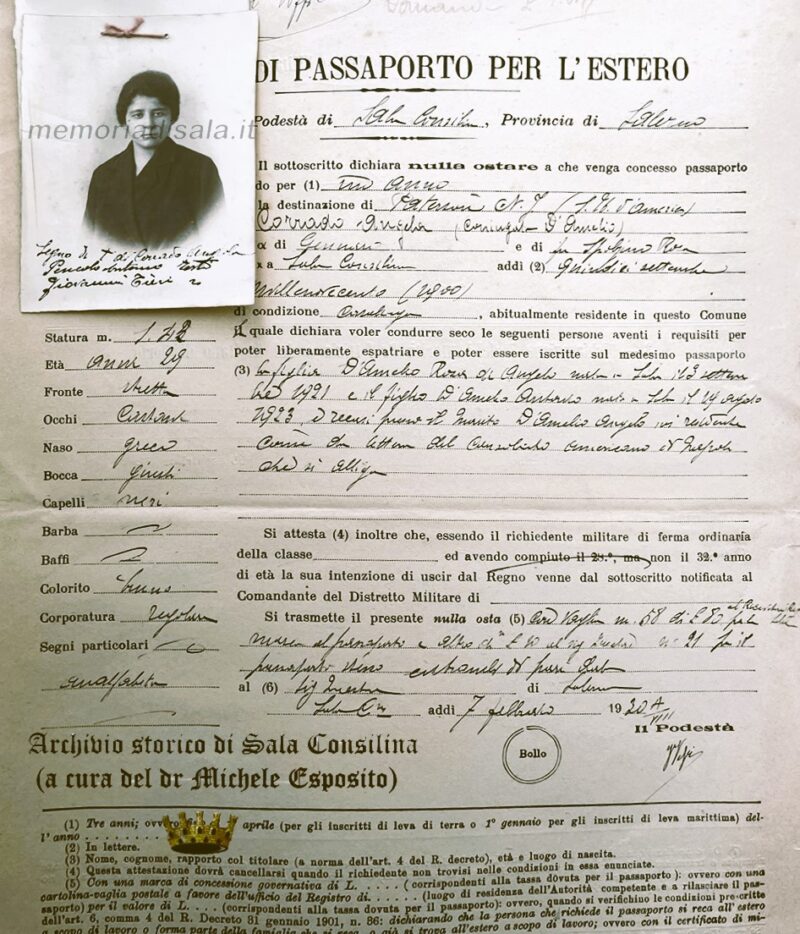 DI PASSAPORTO PER L'ESTERO
Podestà di Sala Consilina, Provincia di Salerno
memoriadisala.it
Il sottoscritto dichiara nulla ostare a che venga concesso passaporto
do per (1) un anno
la destinazione di Paterson N. J. (S. U. d'America)
Corrado Angela (coniugata D'Amelio)
di Gennaro e di fu Spolzino Rosa
a Sala Consilina addì (2) Quindici settembre
Millenovecento (1900)
Segno di + di Corrado Angela
Antonio teste
Giovanni Tieri
di condizione casalinga, abitualmente residente in questo Comune
Il quale dichiara voler condurre seco le seguenti persone aventi i requisiti per
poter liberamente espatriare e poter essere iscritte sul medesimo passaporto
(3) la figlia D'Amelio Rosa di Angelo nata a Sala il 3 settem
bre 1921 e il figlio D'Amelio Antonio nato a Sala il 29 agosto
1923 si recasi presso il marito D'Amelio Angelo ivi residente
come da lettera del Consolato americano di Napoli
che si alliga
Statura m. 1.42
Età anni 29
Fronte stretta
Occhi Castani
Naso greco
Bocca giusta
Capelli neri
Barba
Baffi
Colorito bruno
Corporatura regolare
Segni particolari
analfabeta
Si attesta (4) inoltre che, essendo il richiedente militare di ferma ordinaria
della classe ed avendo compiuto il 28.º, ma non il 32.º anno
di età la sua intenzione di uscir dal Regno venne dal sottoscritto notificata al
Comandante del Distretto Militare di
Si trasmette il presente nulla osta (5) con vaglia n. 58 di £ 80 per la
marca al passaporto e altro di £ al sig n. 21 per il
passaporto stesso di pari data
al (6) Sig Questore di Salerno
Sala Cna addì 7 febbraio 1930 A VIII
Il Podestà
Bollo
Archivio storico di Sala Consilina
(a cura del dr Michele Esposito)
(1) Tre anni; ovvero aprile (per gli inscritti di leva di terra o 1º gennaio per gli inscritti di leva marittima) del-
l'anno
(2) In lettere.
(3) Nome, cognome, rapporto col titolare (a norma dell'art. 4 del R. decreto), età e luogo di nascita.
(4) Questa attestazione dovrà cancellarsi quando il richiedente non trovisi nelle condizioni in essa enunciate.
(5) Con una marca di concessione governativa di L. (corrispondenti alla tassa dovuta per il passaporto): ovvero con una
cartolina-vaglia postale a favore dell'ufficio del Registro di (luogo di residenza dell'Autorità competente e a rilasciare il pas-
saporto) per il valore di L. (corrispondenti alla tassa dovuta per il passaporto): ovvero, quando si verifichino le condizioni pre-critte
dell'art. 6, comma 4 del R. Decreto 31 gennaio 1901, n. 36: dichiarando che la persona che richiede il passaporto si reca all'estero
a scopo di lavoro o forma parte della famiglia che si reca o già si trova all'estero a scopo di lavoro; ovvero con il certificato di mi-